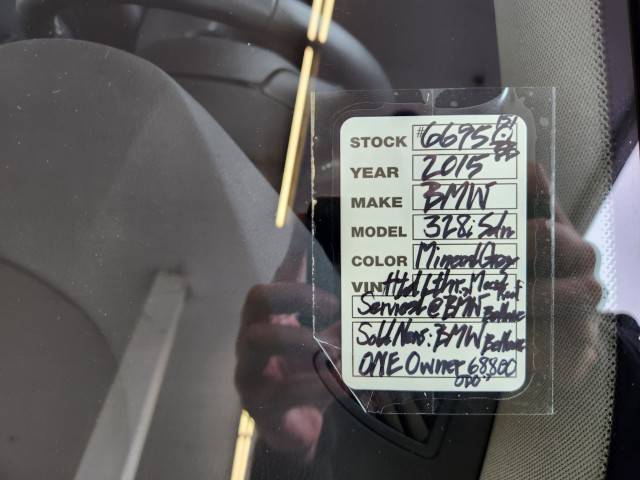 STOCK #6695
YEAR 2015
MAKE BMW
MODEL 328i Sdn
COLOR Mineral Gray
VIN Htd Lthr, Moon Roof
Serviced @ BMW Bellevue
Sold New: BMW Bellevue
ONE Owner 68800
ODO